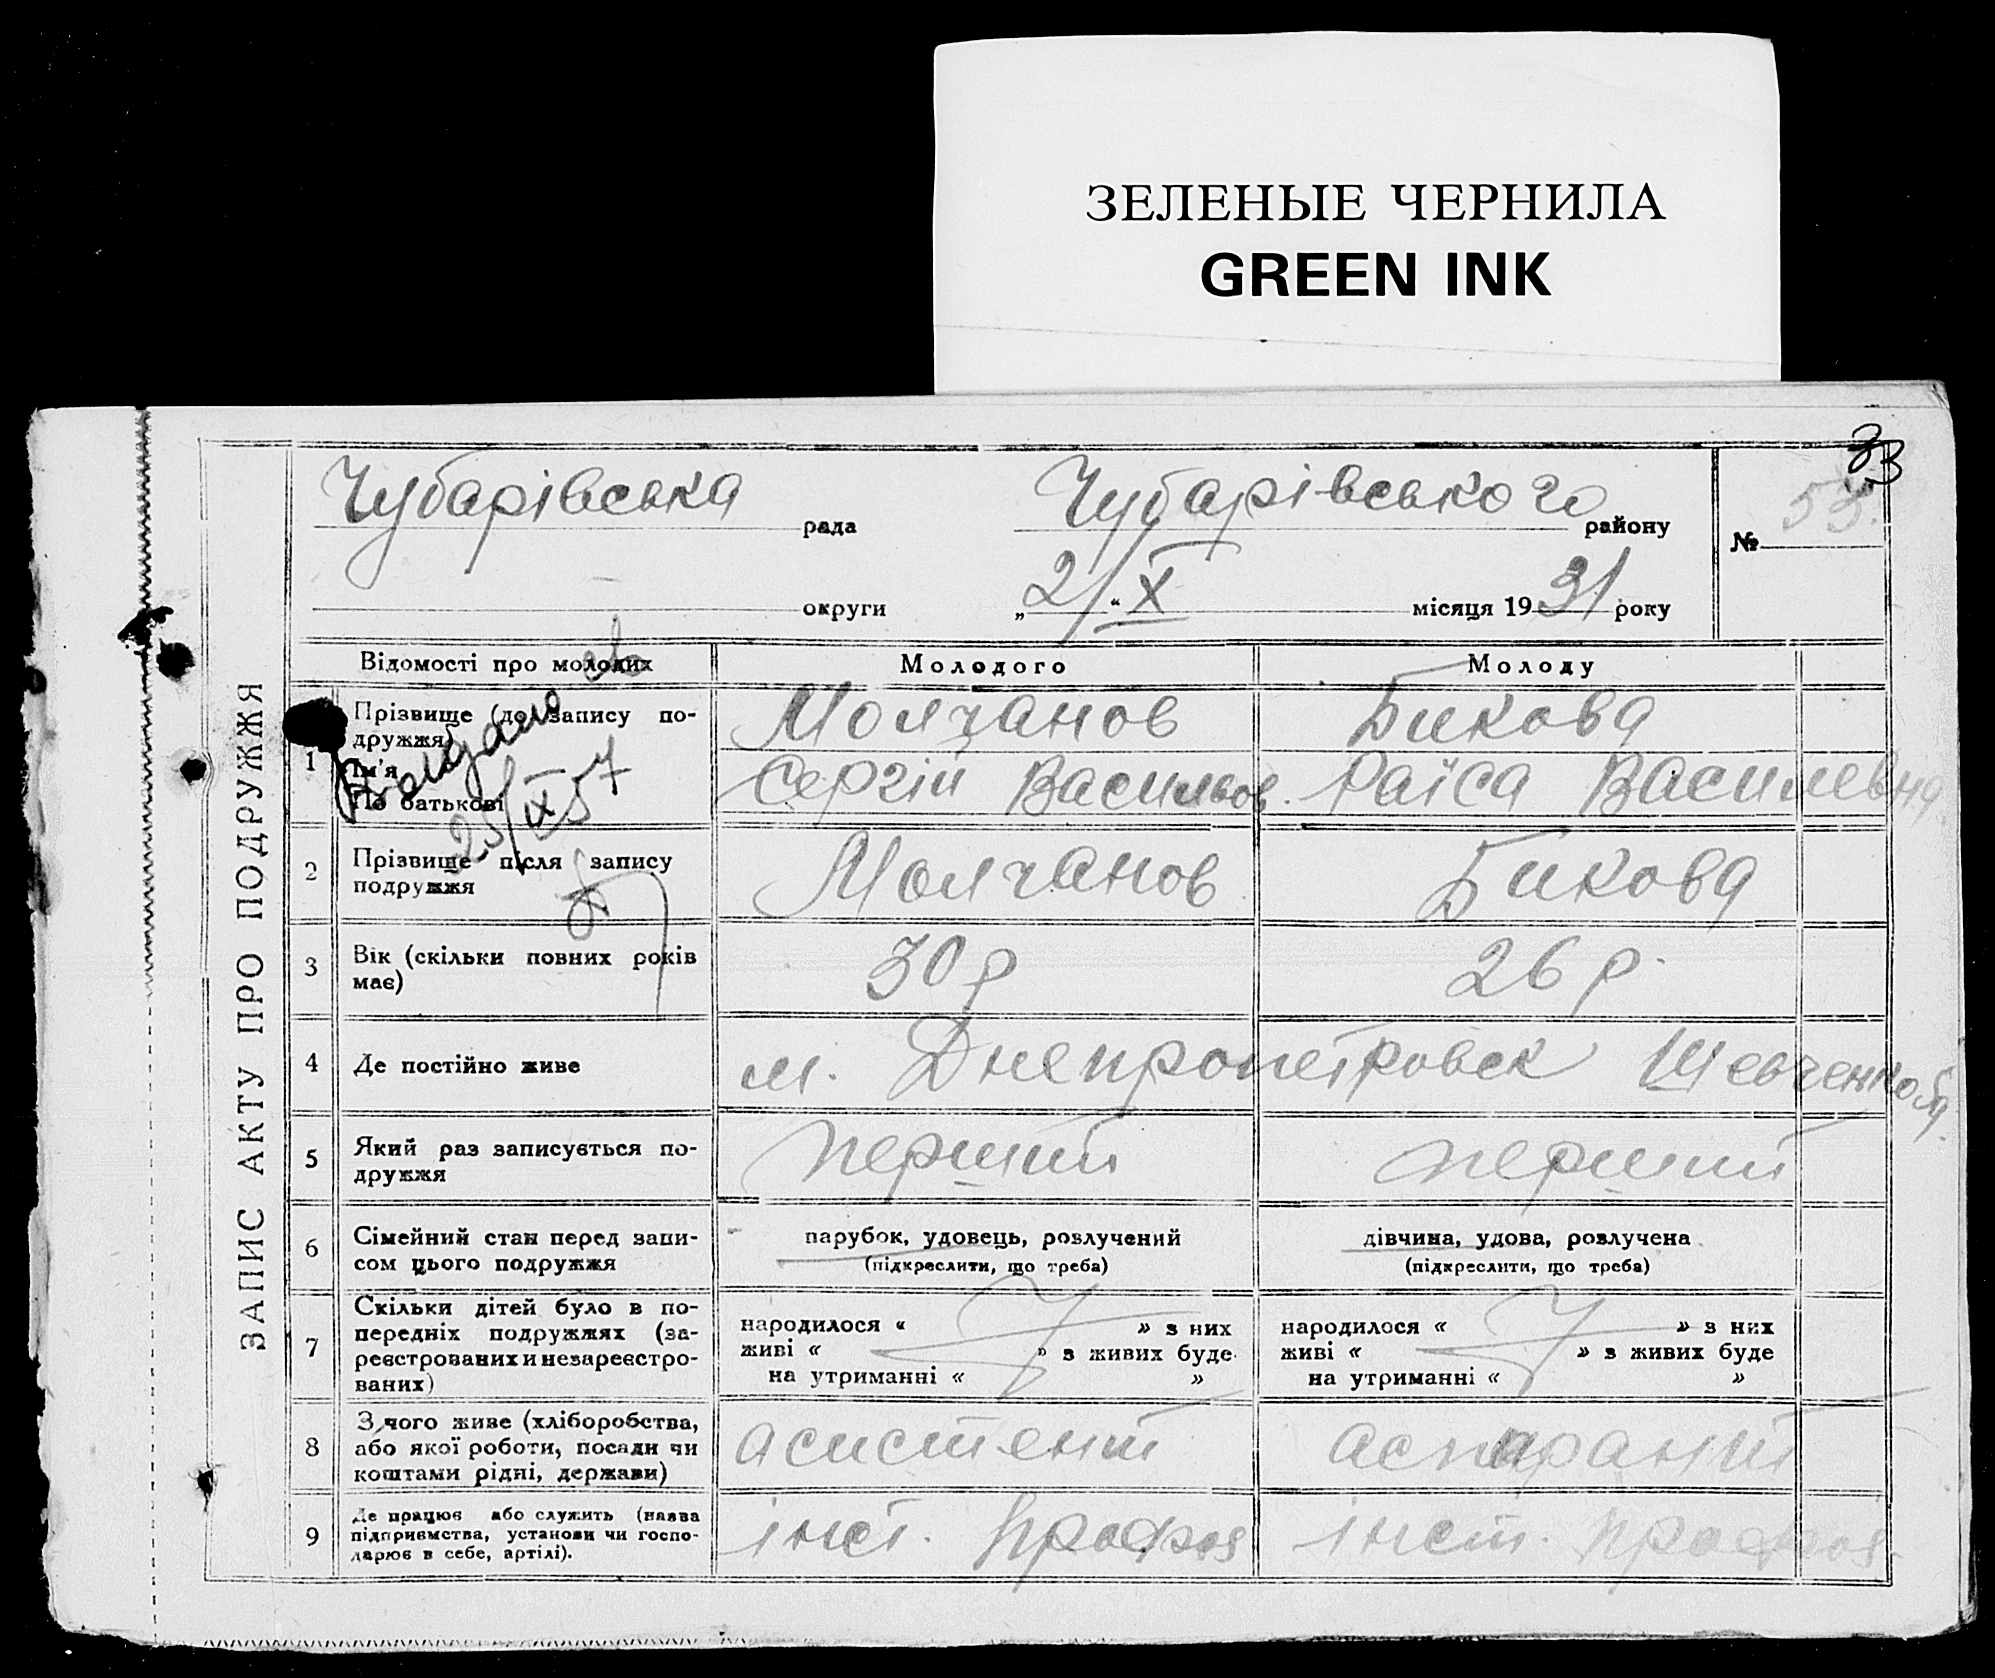 ЗЕЛЕНЫЕ ЧЕРНИЛА
GREEN INK
33
Чубарівська рада Чубарівського району № 53.
округи „2/“ X місяця 1931 року
ЗАПИС АКТУ ПРО ПОДРУЖЖЯ
Відомості про молодих Молодого Молоду
1 Прізвище (до запису по-
дружжя) Молчанов Бикова
Ім'я
По батькові Сергій Васильов. Раїса Василевна
Выдано св
25/IX 57
2 Прізвище після запису
подружжя Молчанов Бикова
3 Вік (скільки повних років
має) 30 р 26 р.
4 Де постійно живе м. Днепропетровск Шевченко
5 Який раз записується по-
дружжя перший перший
6 Сімейний стан перед запи-
сом цього подружжя
парубок, удовець, розлучений
(підкреслити, що треба)
дівчина, удова, розлучена
(підкреслити, що треба)
7 Скільки дітей було в по-
передніх подружжях (за-
реєстрованих и незареєстро-
ваних)
народилося « » з них
живі « » з живих буде
на утриманні « »
народилося « » з них
живі « » з живих буде
на утриманні « »
8 З чого живе (хліборобства,
або якої роботи, посади чи
коштами рідні, держави) асистент аспирант
9 Де працює або служить (назва
підприємства, установи чи госпо-
дарює в себе, артілі). інст. інст.